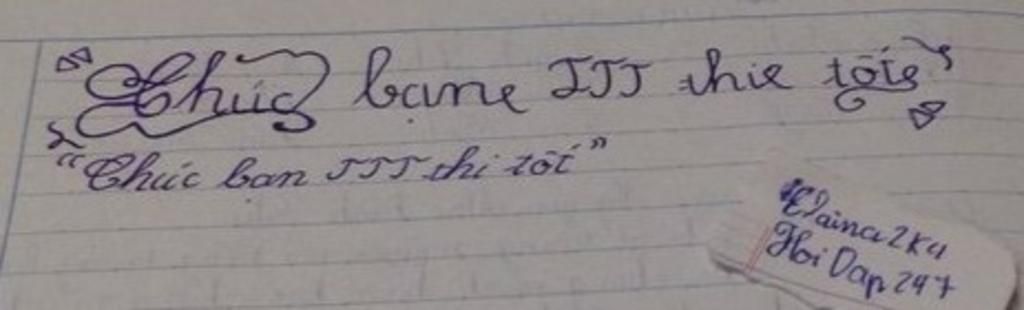 Chúc bạn JJJ thi tốt
"Chúc bạn JJJ thi tốt"
Elaina2k4
Hoi Dap 247